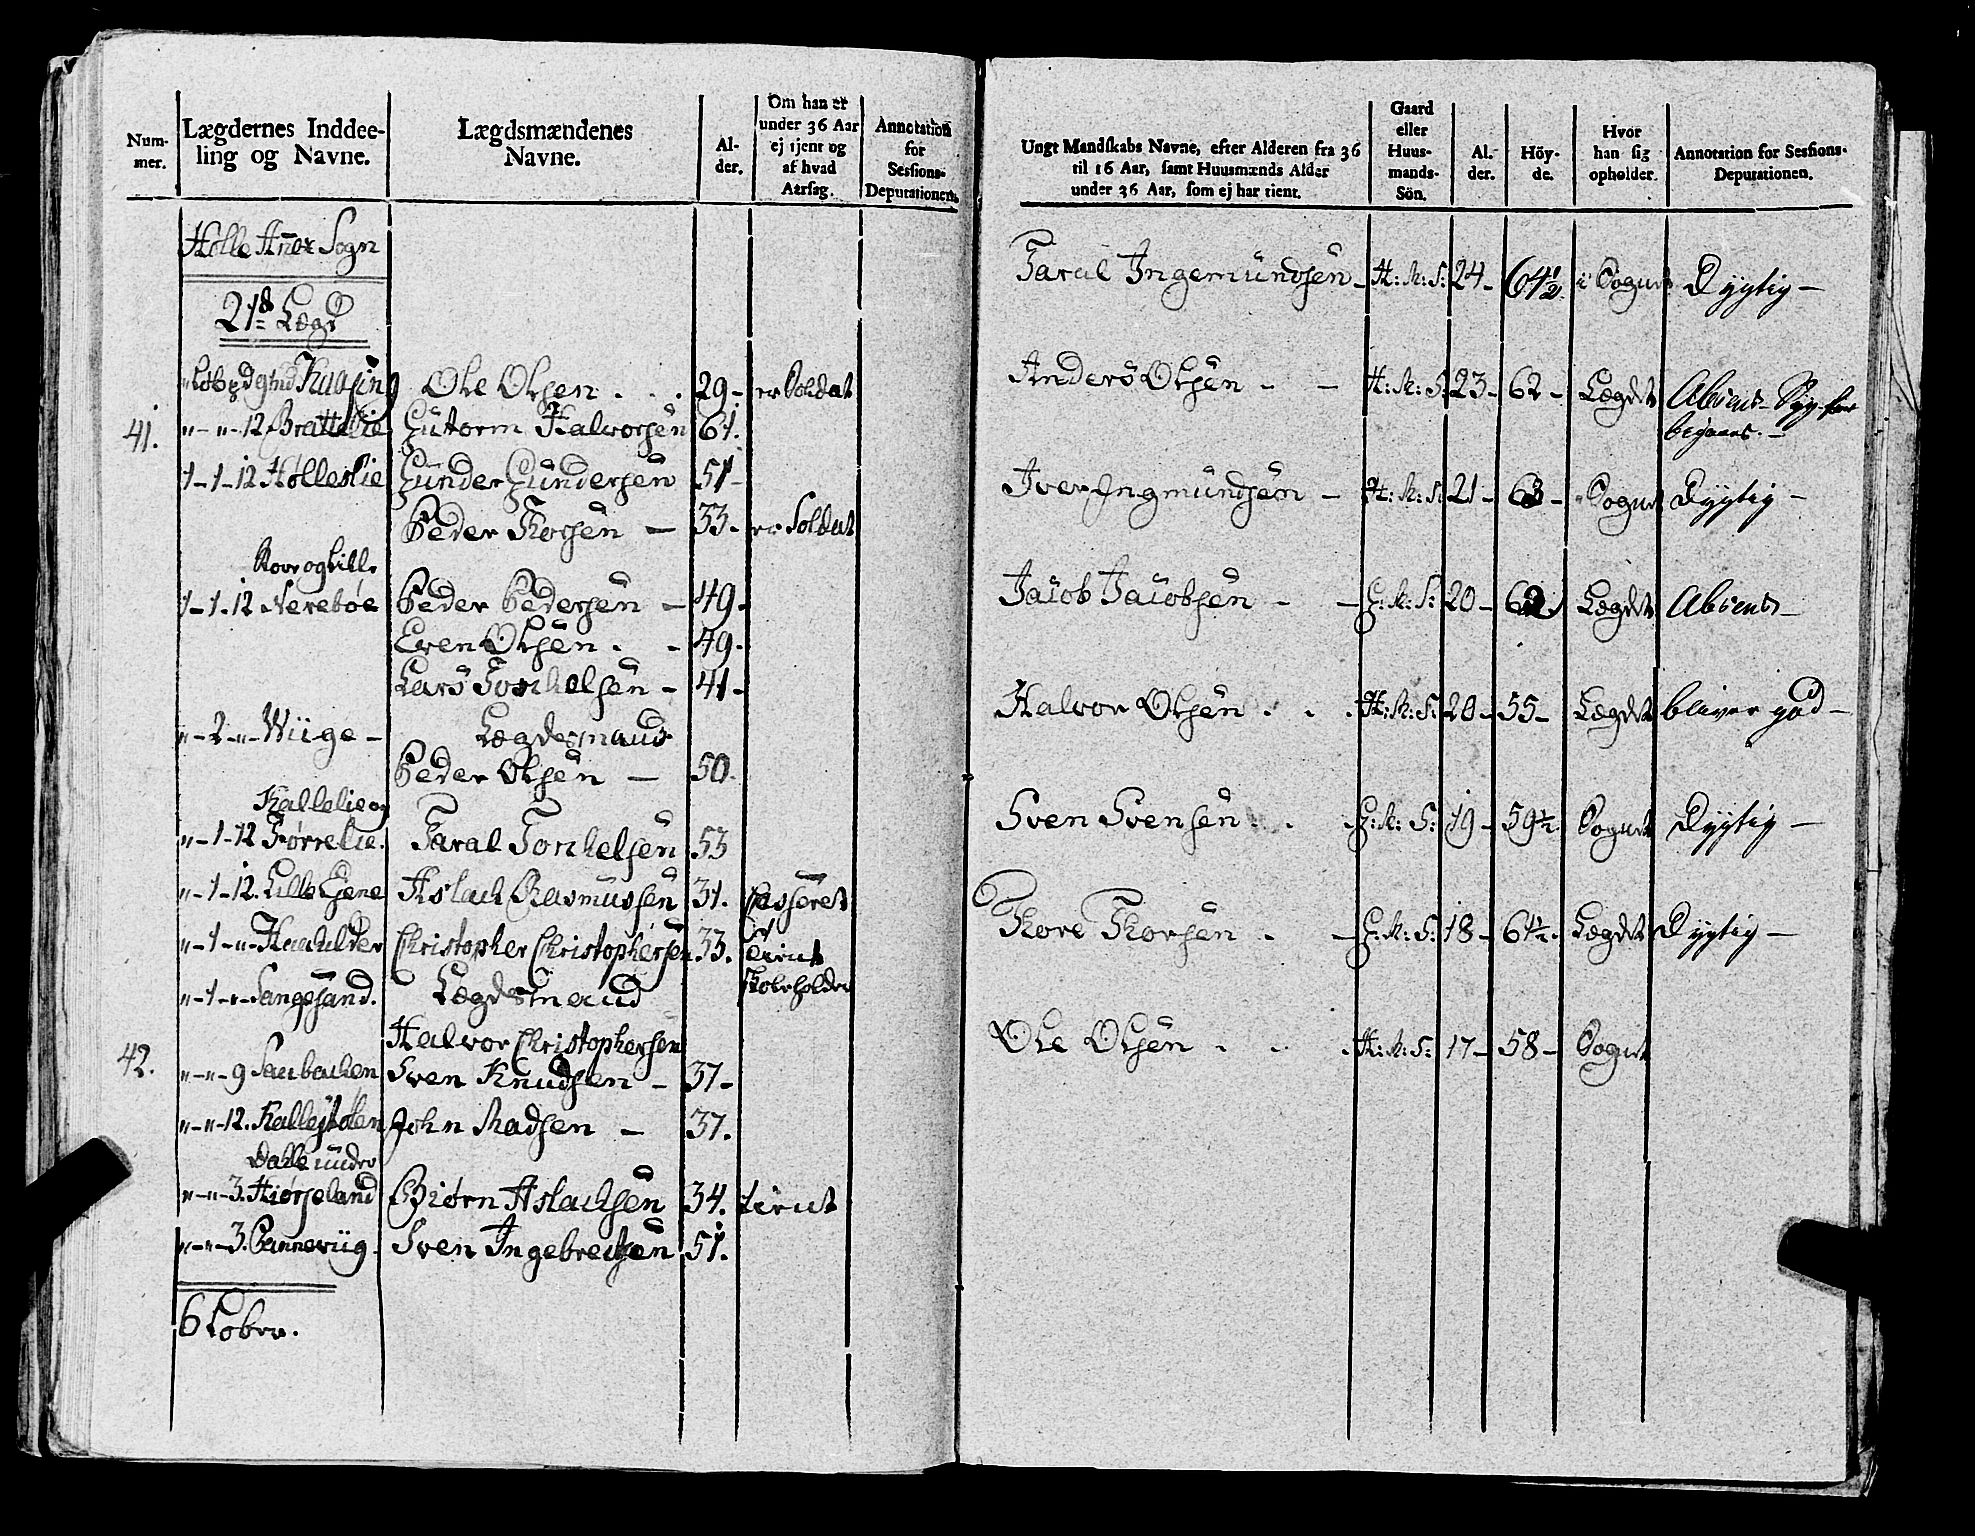 Num-
mer.
Lægdernes Inddee-
ling og Navne.
Lægdsmændenes
Navne.
Al-
der.
Om han er
under 36 Aar
ej tjent og
af hvad
Aarsag.
Annotation
for
Sessions-
Deputationen.
Holle Añex Sogn
21de Lægd
Ole Olsen . . . 29 - er Soldat
41. " - " - 12 Brattelie Gutorm Halvorsen 61.
1 - 1 - 12 Hølleslie Gunder Gundersen 51 -
Peder Torsen - 33 - er Soldat
1 - 1 - 12 Nerebøe Peder Pedersen - 49 -
Even Olsen . - 49 -
Lars Torkelsen - 41 -
" - 2 - " - Wiige - Lægdsmand
Peder Olsen - 50.
Kallelie og
" - 1 - 12 Tørrelie. Taral Torkelsen 53
" - 1 - 12. Lille Eјene Aslach Rasmussen 31. Casseret
" - 1 - " - Haahulder Christopher Christophersen 33. tient
" - 1 - " - Langesand. Lægdsmand
Halvor Christophersen
42. " - " - 9 Saubachen Sven Knudsen - 37 -
" - " - 12. John Madsen - 37.
Dalle under
" - " - 3. Hiørseland Biørn Aslachsen 34. tient
" - " - 3. Svен Ingebrechsen 51.
6 Lober.
Ungt Mandskabs Navne, efter Alderen fra 36
til 16 Aar, samt Huusmænds Alder
under 36 Aar, som ej har tient.
Gaard
eller
Huus-
mands-
Sön.
Al-
der.
Höy-
de.
Hvor
han sig
opholder.
Annotation for Sessions-
Deputationen.
Taral Ingemundsen - H: M: S: 24 - 64 1/2 i Sognet Dygtig -
Anders Olsen - - H: M: S: 23 - 62 - Lægdet Absent - Syg
Iver Ingmundsen - H: M: S: 21 - 63 - Sognet Dygtig -
Jacob Jacobsen - - G: M: S: 20 - 62 Lægdet Absent -
Halvor Olsen . . . H: M: S: 20 - 55 - Lægdet bliver god -
Sven Svensen . . G: M: S: 19 - 59 1/2. Sognet Dygtig -
Tore Torsen . - G: M: S: 18 - 61 1/2. Lægdet Dygtig -
Ole Olsen . . . H: M: S: 17 - 58 - Sognet